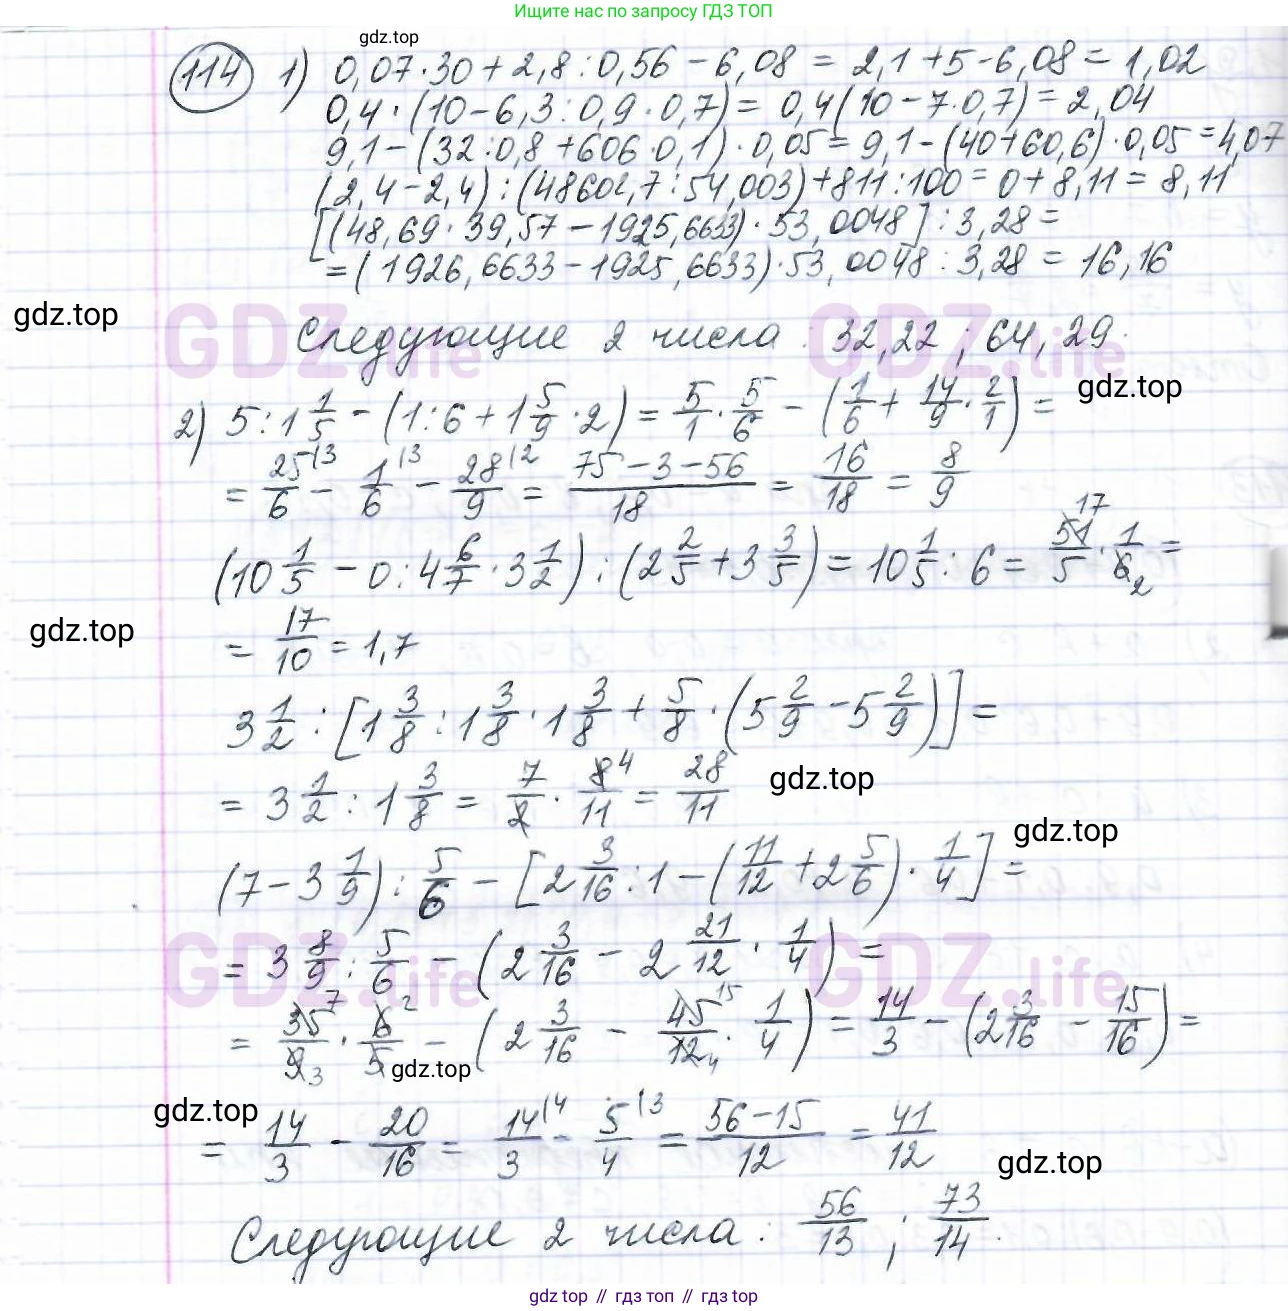 Ищите нас по запросу ГДЗ ТОП
gdz.top
114 1) 0,07·30+2,8:0,56-6,08 = 2,1+5-6,08=1,02
0,4·(10-6,3:0,9·0,7)= 0,4(10-7·0,7)=2,04
9,1-(32:0,8+606·0,1)·0,05=9,1-(40+60,6)·0,05=4,07
(2,4-2,4):(48602,7:54,003)+811:100=0+8,11=8,11
[(48,69·39,57-1925,6633)·53,0048]:3,28=
=(1926,6633-1925,6633)·53,0048:3,28=16,16
gdz.top
GDZ.life GDZ.life
Следующие 2 числа: 32,22; 64,29.
gdz.top
2) 5:1 1/5 - (1:6+1 5/9·2) = 5/1·5/6 - (1/6+14/9·2/1) =
= 25/6 |3 - 1/6 |3 - 28/9 |2 = (75-3-56)/18 = 16/18 = 8/9
(10 1/5 - 0:4 6/7·3 1/2):(2 2/5+3 3/5)=10 1/5:6= 51 17/5·1/6 2 =
gdz.top
= 17/10 = 1,7
3 1/2:[1 3/8:1 3/8·1 3/8+5/8·(5 2/9-5 2/9)]=
= 3 1/2:1 3/8 = 7/2·8 4/11 = 28/11
gdz.top
gdz.top
(7-3 1/9):5/6-[2 3/16:1-(11/12+2 5/6)·1/4]=
GDZ.life GDZ.life
= 3 8/9:5/6-(2 3/16-2 21/12·1/4)=
= 35 7/9 3·6 2/5-(2 3/16-45 15/12 4·1/4)=14/3-(2 3/16-15/16)=
gdz.top
gdz.top
= 14/3-20/16=14/3 |4-5/4 |3=(56-15)/12=41/12
gdz.top
Следующие 2 числа: 56/13; 73/14.
gdz.top // гдз топ // gdz.top